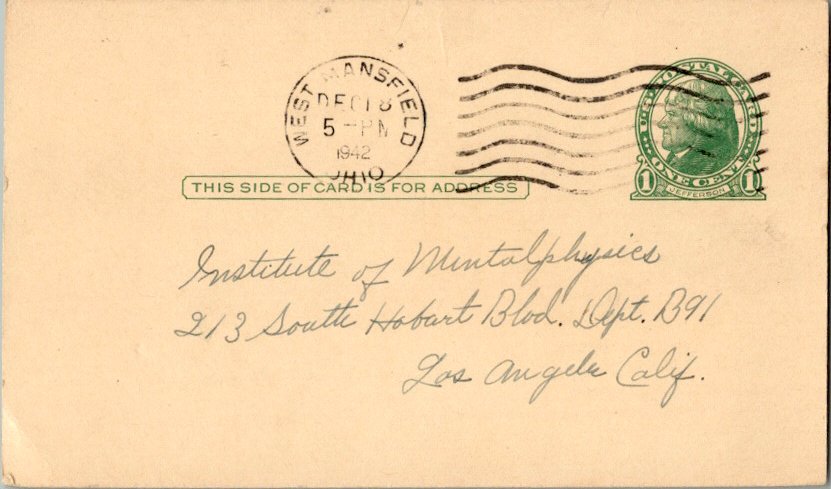 WEST MANSFIELD
DEC 18
5 - PM
1942
OHIO
U.S. POSTAL CARD
ONE CENT
1 JEFFERSON 1
THIS SIDE OF CARD IS FOR ADDRESS
Institute of Mentalphysics
213 South Hobart Blvd. Dept. B91
Los Angeles Calif.